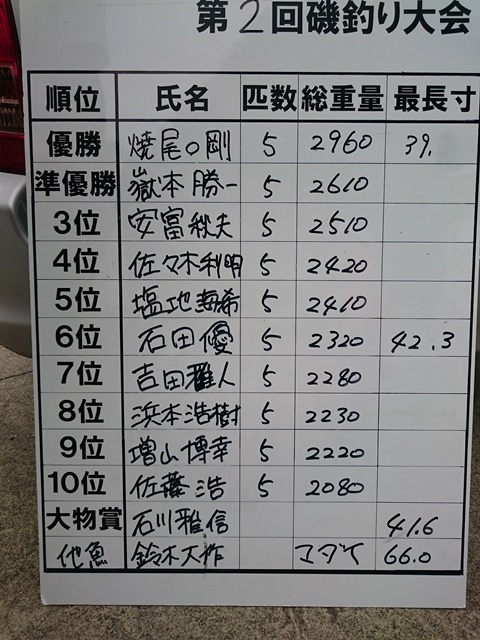 第2回磯釣り大会
順位 氏名 匹数 総重量 最長寸
優勝 焼尾○剛 5 2960 39.
準優勝 嶽本勝一 5 2610
3位 安富秋夫 5 2510
4位 佐々木利明 5 2420
5位 塩地海希 5 2410
6位 石田優 5 2320 42.3
7位 吉田雅人 5 2280
8位 浜本浩樹 5 2230
9位 増山博幸 5 2220
10位 佐藤浩 5 2080
大物賞 石川雅信 41.6
他魚 鈴木大作 マダイ 66.0